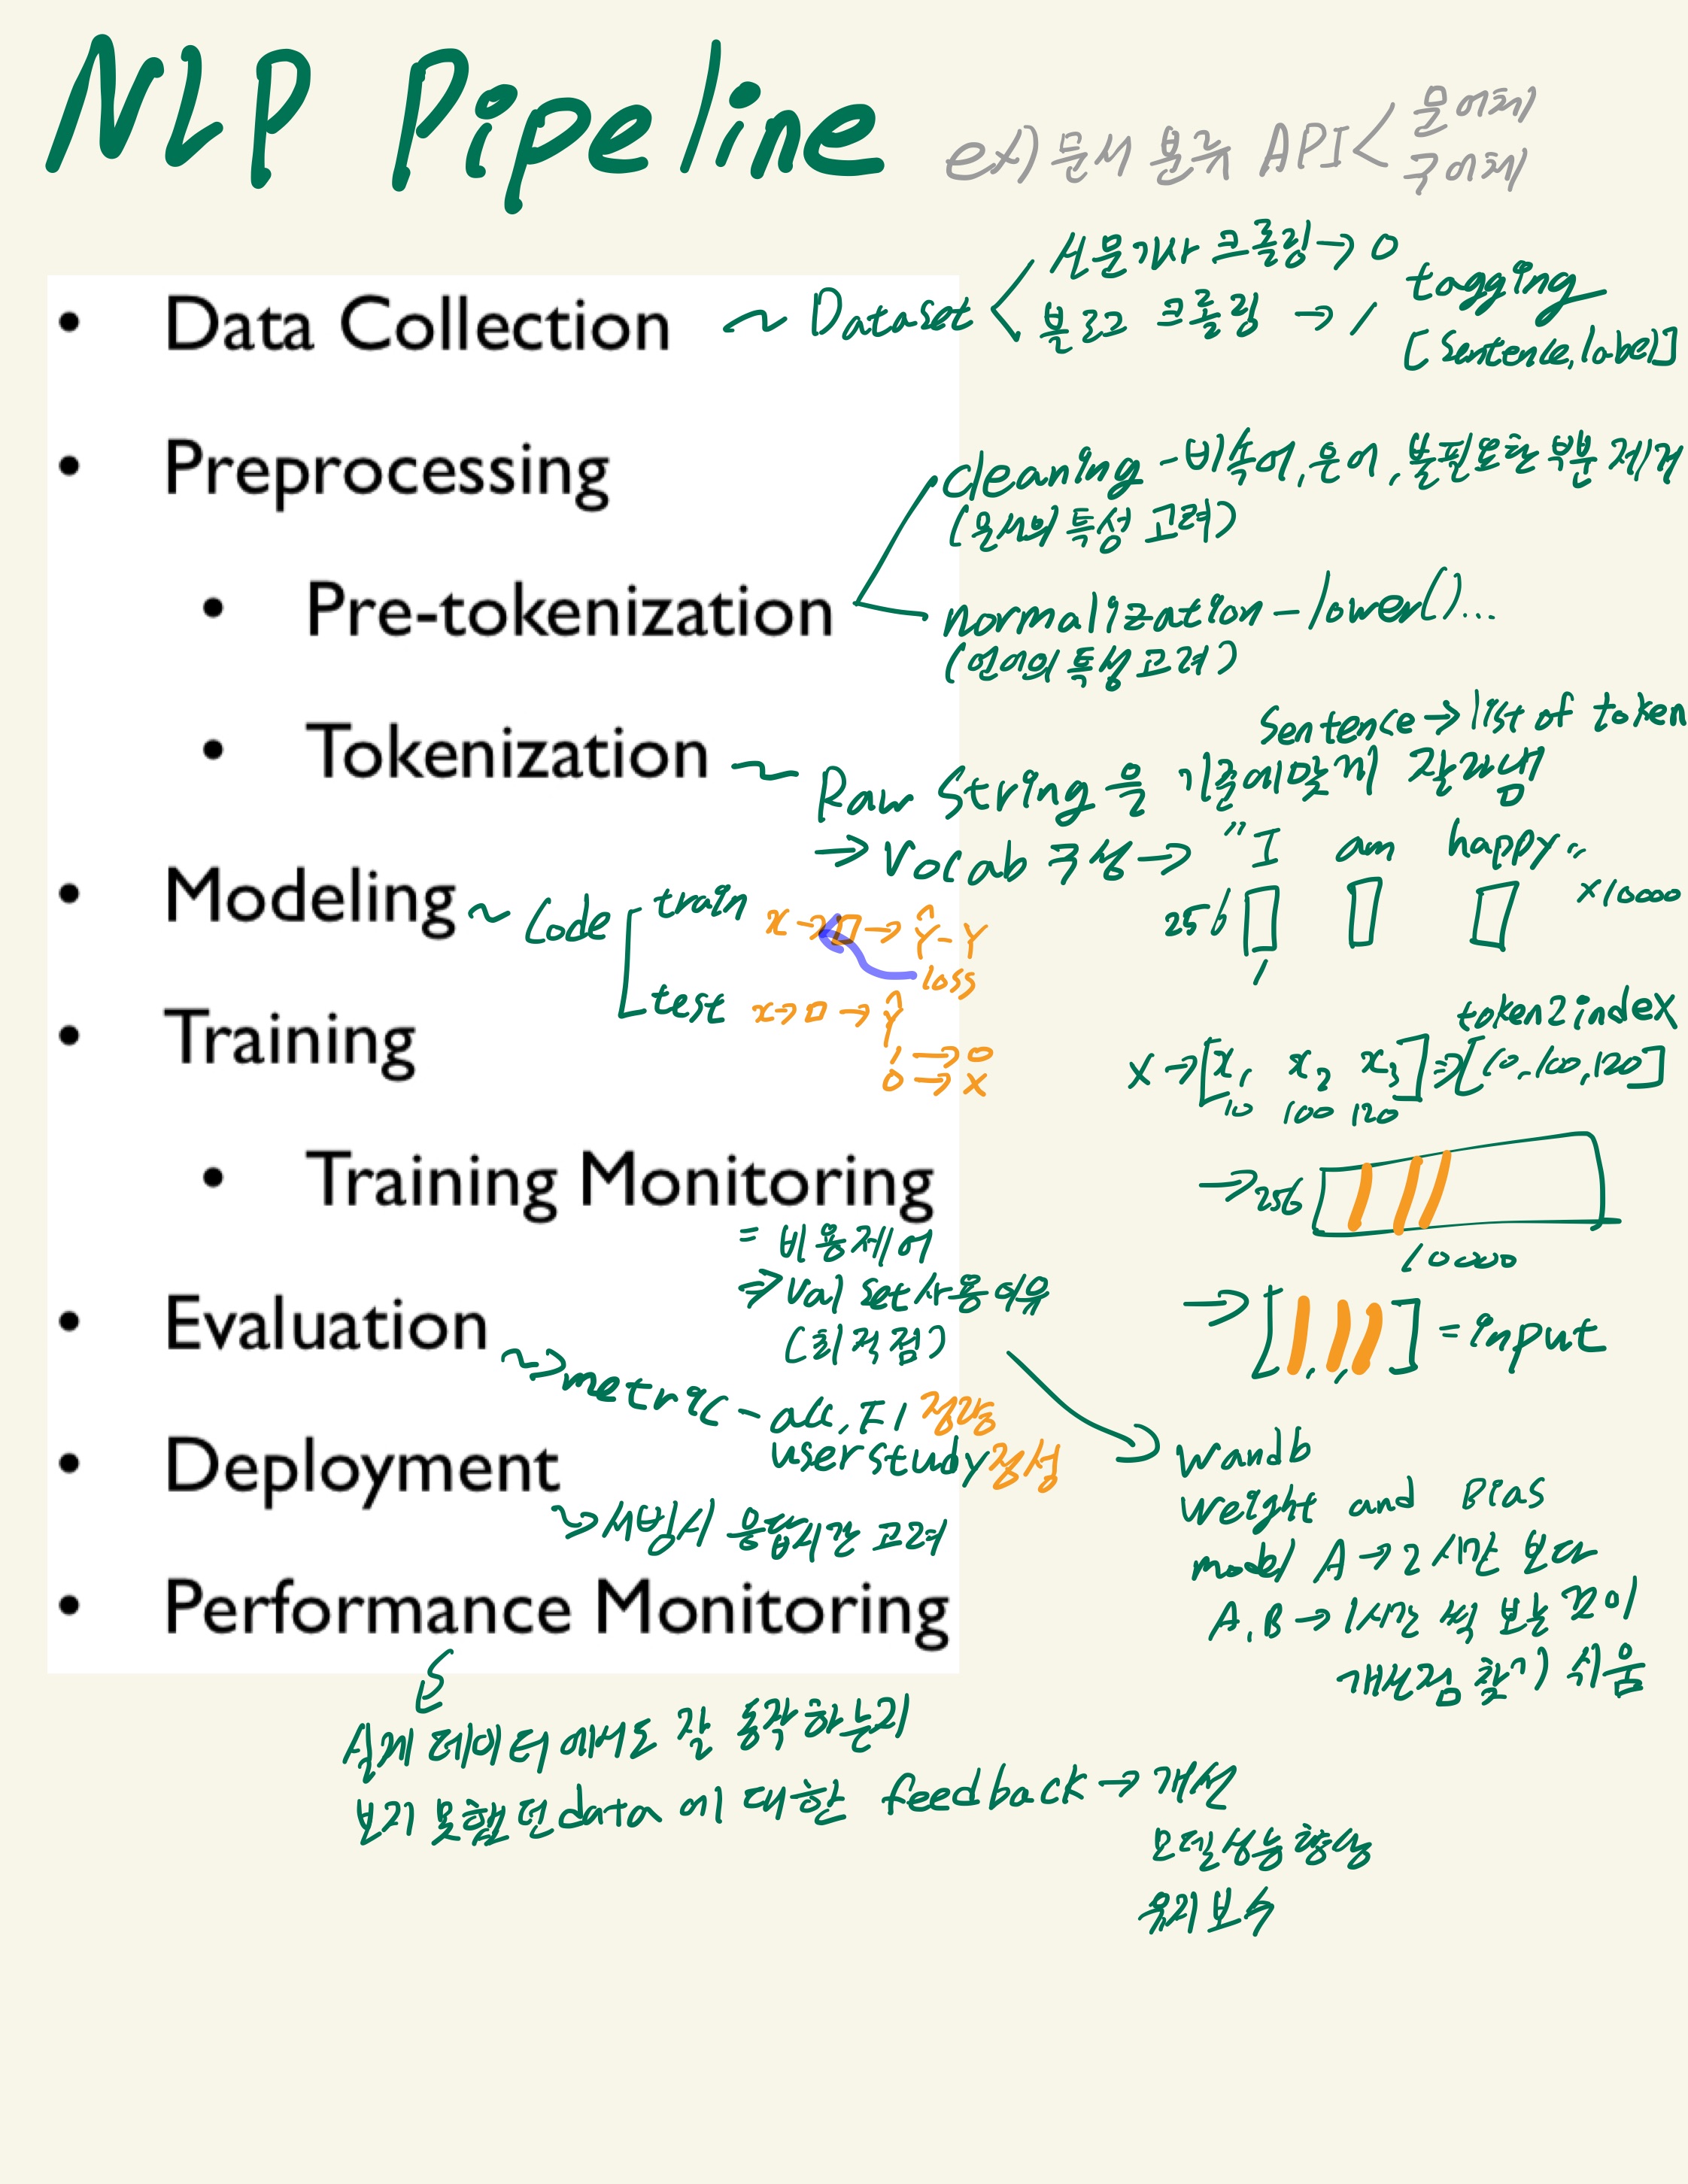 NLP Pipeline
ex) 문서 분류 API < 문어체
구어체
• Data Collection ~ Dataset < 신문기사 크롤링 → 0
블로그 크롤링 → 1
tagging
[Sentence, label]
• Preprocessing
cleaning - 비속어, 은어, 불필요한 부분 제거
(문서의 특성 고려)
• Pre-tokenization
normalization - lower()...
(언어의 특성 고려)
• Tokenization ~
Sentence → list of token
Raw String 을 기준에맞게 잘라냄
→ Vocab 구성 → "I am happy"
256
1
×10000
• Modeling ~ Code
train x → □ → Ŷ - Y
loss
test x → □ → Ŷ
1 → 0
0 → x
token2index
X → [x1 x2 x3] ⇒ [10, 100, 120]
10 100 120
• Training
→ 256
10000
→ [ , , ] = input
• Training Monitoring
= 비용제어
⇒ Val set 사용이유
(최적점)
wandb
weight and Bias
model A → 2시간 보다
A, B → 1시간 씩 보는 것이
개선점 찾기 쉬움
• Evaluation
→ metric - acc, F1 정량
user study 정성
• Deployment
→ 서빙시 응답시간 고려
• Performance Monitoring
실제 데이터에서도 잘 동작하는지
보지 못했던 data에 대한 feedback → 개선
모델성능향상
유지보수